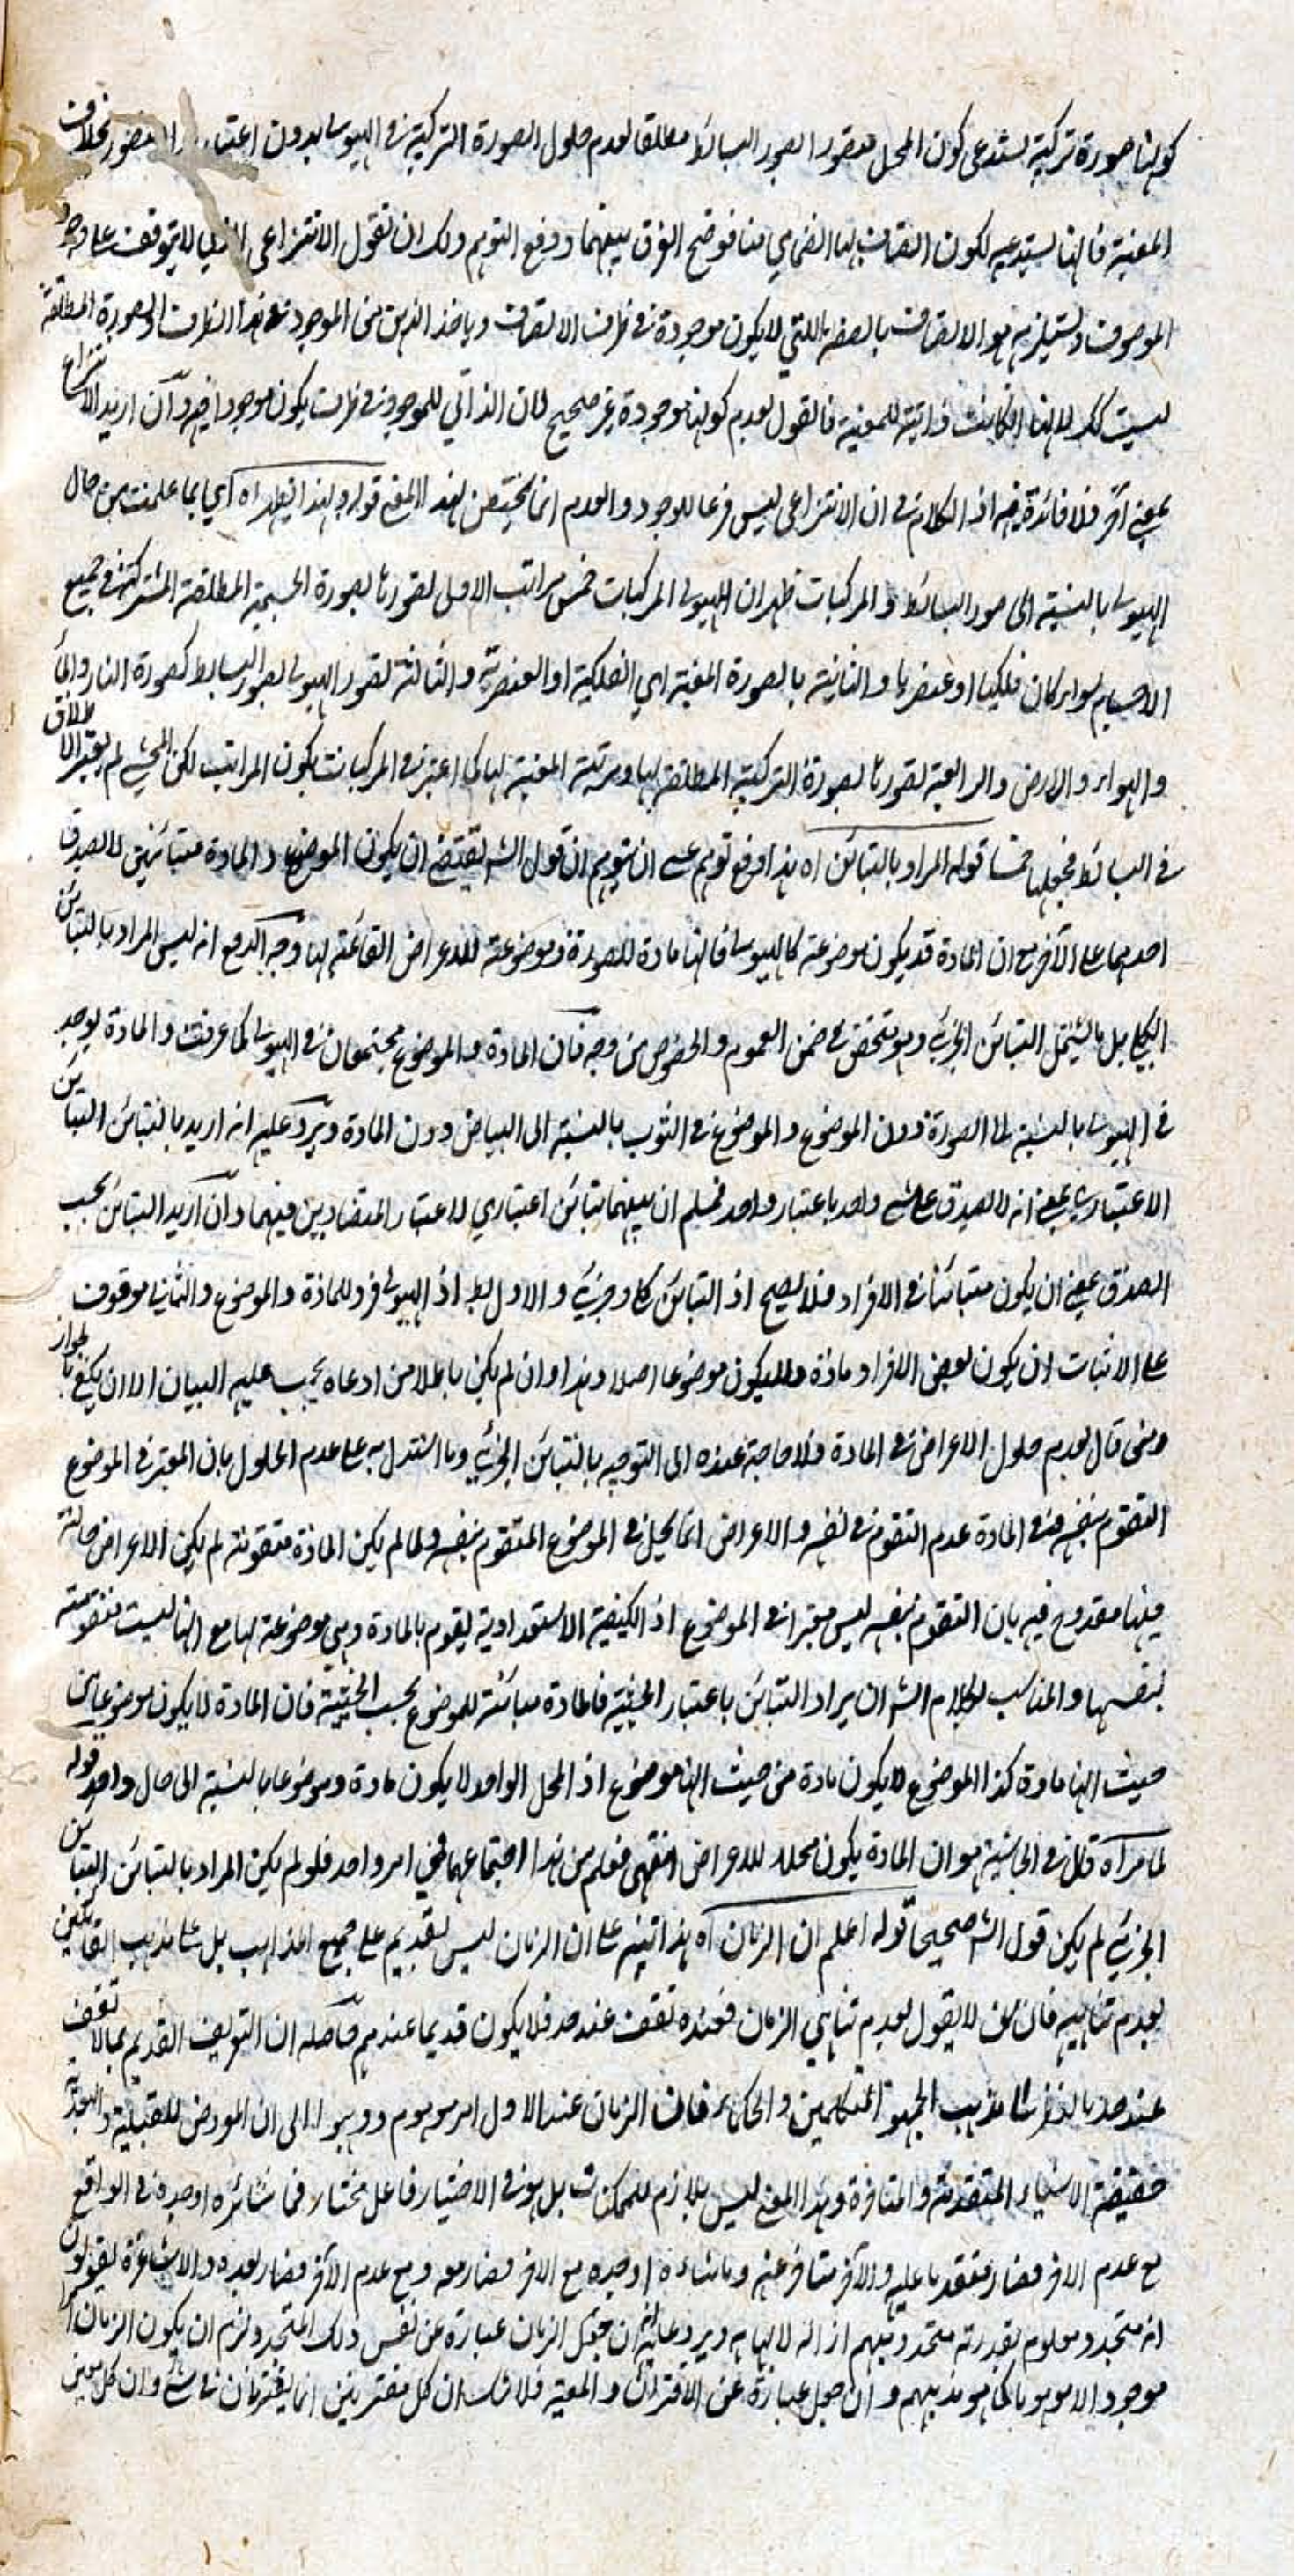 كونها صورة تركيبية يستدعي كون المحل متصورا بصور البسائط مطلقا لعدم حلول الصورة التركيبية في الهيولى بدون اعتبار التصور بخلاف
المعنية فانها يستدعيه لكون اتصاف لها الضمامي منا فوضح الفرق بينهما ودفع التوهم ولك ان تقول الانتزاعي لا يتوقف على وجود
الموصوف ويستلزمه هو الاتصاف بالصفة اللتي لا يكون موجودة في ظرف الاتصاف وياخذ الذهن من الموجود في هذا الظرف والصورة المطلقة
ليست كك لانها لما كانت ذاتية للمعنية فالقول بعدم كونها موجودة غير صحيح لان الذاتي للموجود في ظرف يكون موجودا فيه وان اريد الانتزاع
بمعنى آخر فلا فائدة فيه اذ الكلام في ان الانتزاعي ليس فرعا للوجود والعدم انما يختص بهذا المعنى قوله وبهذا يظهر اه اي بما علمت من حال
الهيولى بالنسبة الى صور البسائط والمركبات ظهر ان لهيولى المركبات خمس مراتب الاول تصورها بصورة الجسمية المطلقة المشتركة في جميع
الاجسام سواء كان فلكيا او عنصريا والثانية بالصورة المعنية اي الفلكية او العنصرية والثالثة تصور الهيولى بصور البسائط كصورة النار والماء
والهواء والارض والرابعة تصورها بصورة التركيبية المطلقة لها ومرتبة المعنية لها كما اعتبر في المركبات تكون المراتب لكن المحشي لم يعتبر الاطلاق
في البسائط فجعلها خمسا قوله المراد بالتباين اه هذا دفع توهم عسى ان يتوهم ان قول الش يقتضي ان يكون الموضوع والمادة متبائنين لا يصدق
احدهما على الآخر مع ان المادة قد يكون موضوعة كالهيولى فانها مادة للصورة وموضوعة للاعراض القائمة لها وجه الدفع انه ليس المراد بالتباين
الكلي بل ما يشتمل التباين الجزئي وهو يتحقق في ضمن العموم والخصوص من وجه فان المادة والموضوع يجتمعان في الهيولى كما عرفت والمادة يوجد
في الهيولى بالنسبة الى الصورة دون الموضوع والموضوع في الثوب بالنسبة الى البياض دون المادة ويرد عليه انه اريد بالتباين التباين
الاعتباري بمعنى انه لا يصدق على شيء واحد باعتبار واحد فمسلم ان بينهما تباين اعتباري لاعتبار المتضادين فيهما وان اريد التباين بحسب
الصدق بمعنى ان يكون متبائنا في الافراد فلا يصح اذ التباين كلي وجزئي والاول بط اذ الهيولى فرد للمادة والموضوع والثاني موقوف
على الاثبات ان يكون بعض الافراد مادة ولا يكون موضوعا اصلا وهذا وان لم يكن باطلا من ادعاه يجب عليه البيان الا ان يكتفي بالجواز
ومن قال بعدم حلول الاعراض في المادة فلا حاجة عنده الى التوجيه بالتباين الجزئي وما استدل به على عدم الحلول بان المعتبر في الموضوع
التقوم بنفسه وفي المادة عدم التقوم في نفسه والاعراض انما يحل في الموضوع المتقوم بنفسه ولما لم يكن المادة متقومة لم يكن الاعراض حالة
فيها مقدوح فيه بان التقوم بنفسه ليس معتبرا في الموضوع اذ الكيفية الاستعدادية يقوم بالمادة وهي موضوعة لها مع انها ليست متقومة
بنفسها والمناسب لكلام الش ان يراد التباين باعتبار الحيثية فالمادة مبائنة للموضوع بحسب الحيثية فان المادة لا يكون موضوعا من
حيث انها مادة كذا الموضوع لا يكون مادة من حيث انها موضوع اذ المحل الواحد لا يكون مادة وموضوعا بالنسبة الى حال واحد قوله
لما مر اه قال في الحاشية هو ان المادة يكون محلا للاعراض انتهى فعلم من هذا اجتماعهما في امر واحد فلو لم يكن المراد بالتباين التباين
الجزئي لم يكن قول الش صحيحا قوله اعلم ان الزمان اه هذا تنبيه على ان الزمان ليس بقديم على جميع المذاهب بل على مذهب القائلين
بعدم تناهيه فان من لا يقول بعدم تناهي الزمان فعنده تقف عند حد فلا يكون قديما عندهم حاصله ان التعريف القديم بما لا تقف
عند حد بالنظر الى مذهب الجمهور المتكلمين والحكماء فان الزمان عند الاول امر موهوم وذهبوا الى ان المعروض للقبلية والبعدية
حقيقة الاشياء المتقدمة والمتاخرة وهذا المعنى ليس بلازم للممكنات بل هو في الاختيار فاعل مختار فما شائه اوجده في الواقع
مع عدم الآخر فصار متقدما عليه والآخر متاخر عنه وما شاءه اوجده مع الآخر فصار معه ومع عدم الآخر فصار بعده والاشاعرة يقولون
انه متجدد معلوم يقدر به متجدد مبهم ازالة لابهامه ويرد عليه ان جعل الزمان عبارة عن نفس ذلك المتجدد لزم ان يكون الزمان امرا
موجود الا موهوما كما هو مذهبهم وان جعل عبارة عن الاقتران والمعية فلا شك ان كل مقترنين انما يقترنان في شيء وان كل معنى